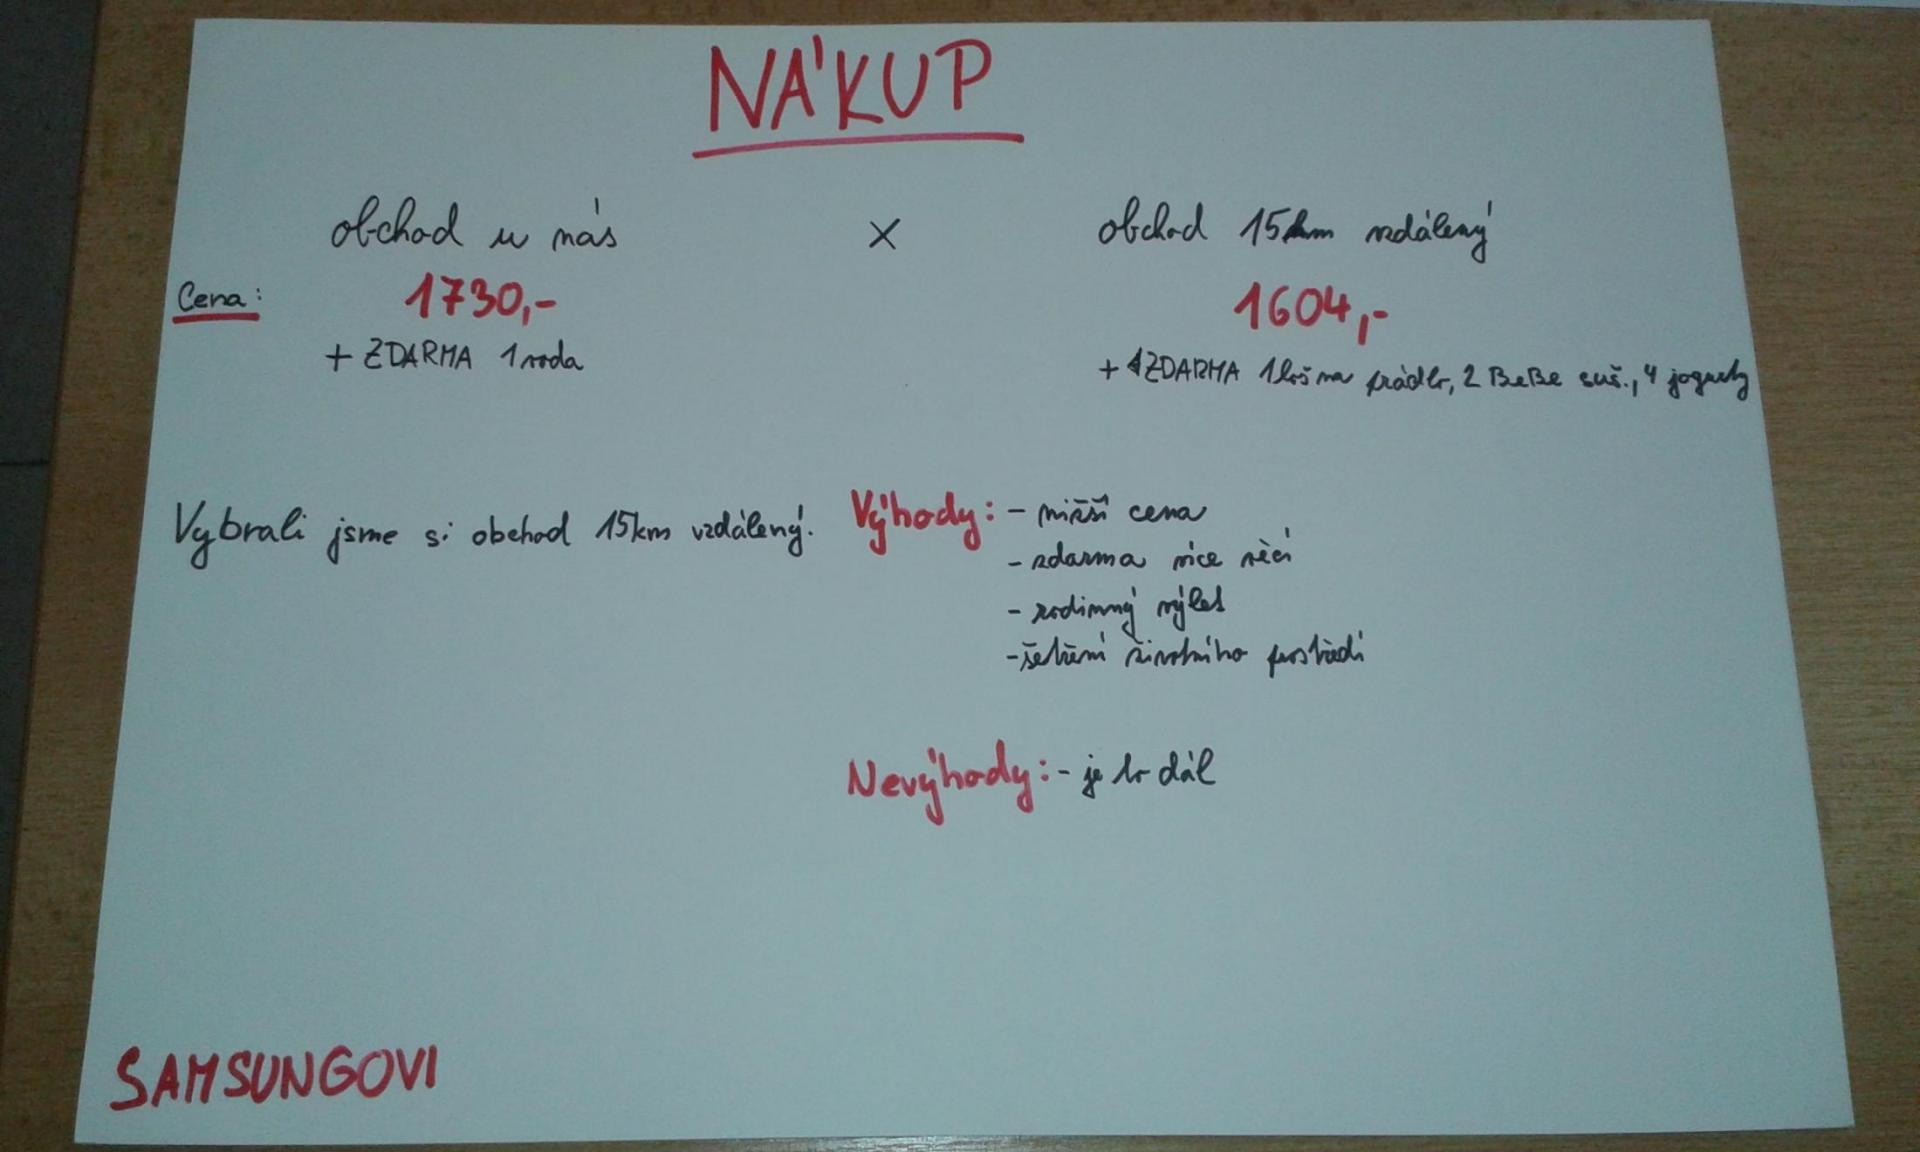 NÁKUP
obchod u nás × obchod 15km vzdálený
Cena: 1730,- 1604,-
+ ZDARMA 1 voda + ZDARMA 1 koš na prádlo, 2 BeBe suš., 4 jogurty
Vybrali jsme si obchod 15km vzdálený. Výhody: - nižší cena
- zdarma více věcí
- rodinný výlet
- šetření životního prostředí
Nevýhody: - je to dál
SAMSUNGOVI